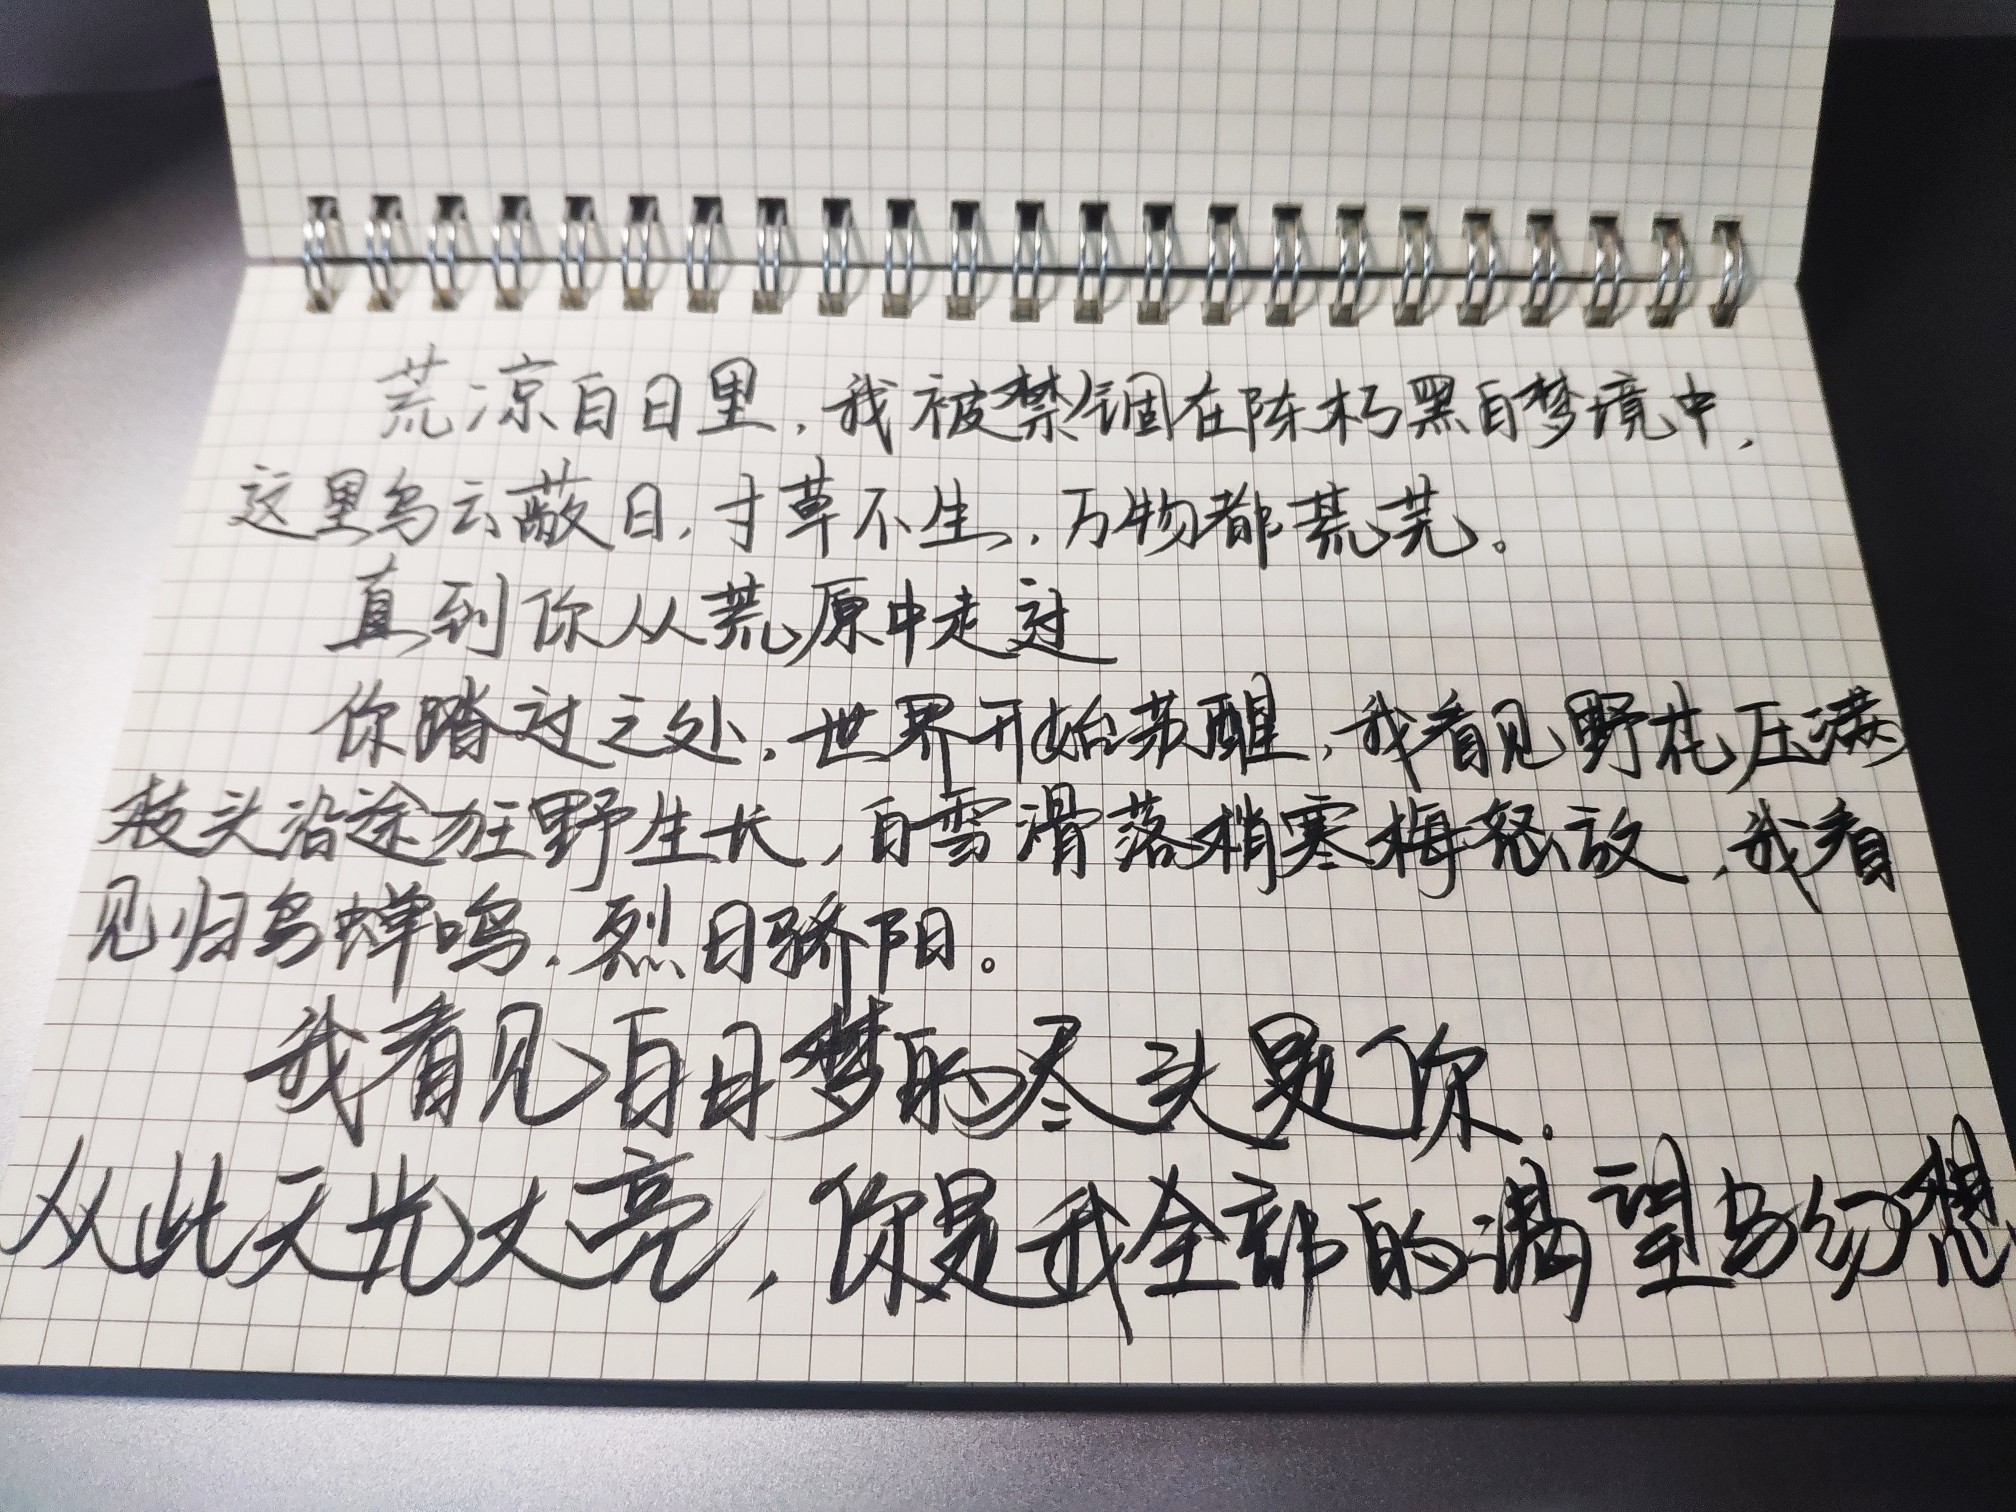 荒凉白日里，我被禁锢在陈朽黑白梦境中，
这里乌云蔽日，寸草不生，万物都荒芜。
直到你从荒原中走过
你踏过之处，世界开始苏醒，我看见野花压满
枝头沿途狂野生长，白雪滑落梢寒梅怒放，我看
见归鸟蝉鸣，烈日骄阳。
我看见白日梦的尽头是你.
从此天光大亮，你是我全部的满望与幻想